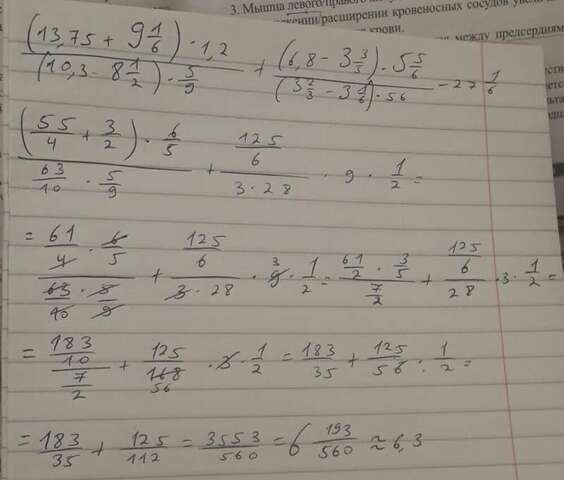 3. Мышца левого/правого
жении/расширении кровеносных сосудов
крови.
между предсердиями
(13,75 + 9 1/6) · 1,2 / (10,3 - 8 1/2) · 5/9 + (6,8 - 3 3/5) · 5 5/6 / (3 2/3 - 3 1/6) · 56 - 27 1/6
(55/4 + 3/2) · 6/5 / 63/10 · 5/9 + 125/6 / 3 · 28 · 9 · 1/2 =
= 61/4 · 6/5 / 63/10 · 5/9 + 125/6 / 3 · 28 · 9 3 · 1/2 = 61/2 · 3/5 / 7/2 + 125/6 / 28 · 3 · 1/2 =
= 183/10 / 7/2 + 125/168 56 · 3 · 1/2 = 183/35 + 125/56 : 1/2 =
= 183/35 + 125/112 = 3553/560 = 6 193/560 ≈ 6,3